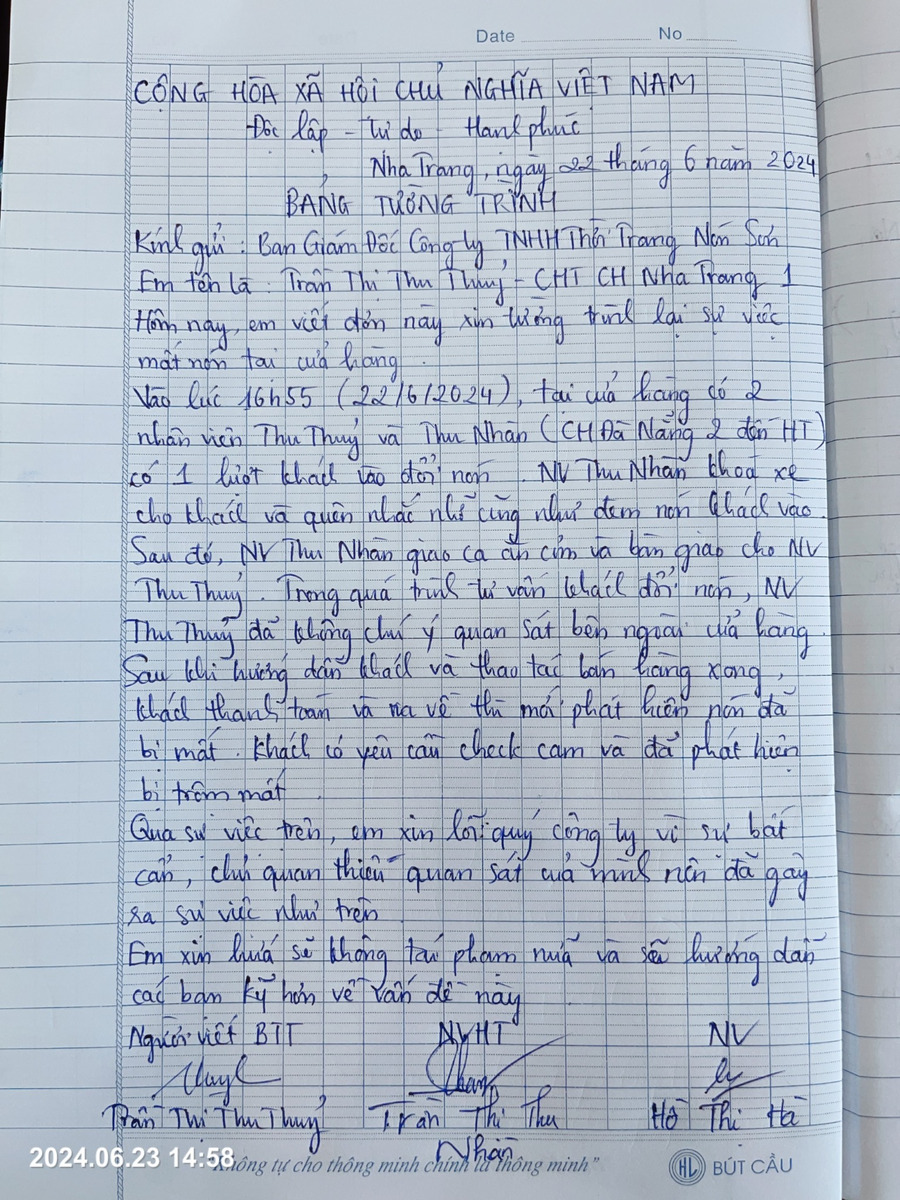 Date No
CỘNG HÒA XÃ HỘI CHỦ NGHĨA VIỆT NAM
Độc lập - Tự do - Hạnh phúc
Nha Trang, ngày 22 tháng 6 năm 2024
BẢNG TƯỜNG TRÌNH
Kính gửi : Ban Giám Đốc Công ty TNHH Thời Trang Nón Sơn
Em tên là : Trần Thị Thu Thuỷ - CHT CH Nha Trang 1
Hôm nay, em viết đơn này xin tường trình lại sự việc
mất nón tại cửa hàng.
Vào lúc 16h55 (22/6/2024), tại cửa hàng có 2
nhân viên Thu Thuỷ và Thu Nhàn (CH Đà Nẵng 2 đến HT)
có 1 lượt khách vào đổi nón. NV Thu Nhàn khoá xe
cho khách và quên nhắc nhở cũng như đem nón khách vào
Sau đó, NV Thu Nhàn giao ca ăn cơm và bàn giao cho NV
Thu Thuỷ. Trong quá trình tư vấn khách đổi nón, NV
Thu Thuỷ đã không chú ý quan sát bên ngoài cửa hàng.
Sau khi hướng dẫn khách và thao tác bán hàng xong,
khách thanh toán và ra về thì mới phát hiện nón đã
bị mất. Khách có yêu cầu check cam và đã phát hiện
bị trộm mất.
Qua sự việc trên, em xin lỗi quý công ty vì sự bất
cẩn, chủ quan thiếu quan sát của mình nên đã gây
ra sự việc như trên
Em xin hứa sẽ không tái phạm nữa và sẽ hướng dẫn
các bạn kỹ hơn về vấn đề này
Người viết BTT NVHT NV
Trần Thị Thu Thuỷ Trần Thị Thu Hồ Thị Hà
Nhàn
2024.06.23 14:58
"Không tự cho thông minh chính là thông minh"
HL BÚT CẦU